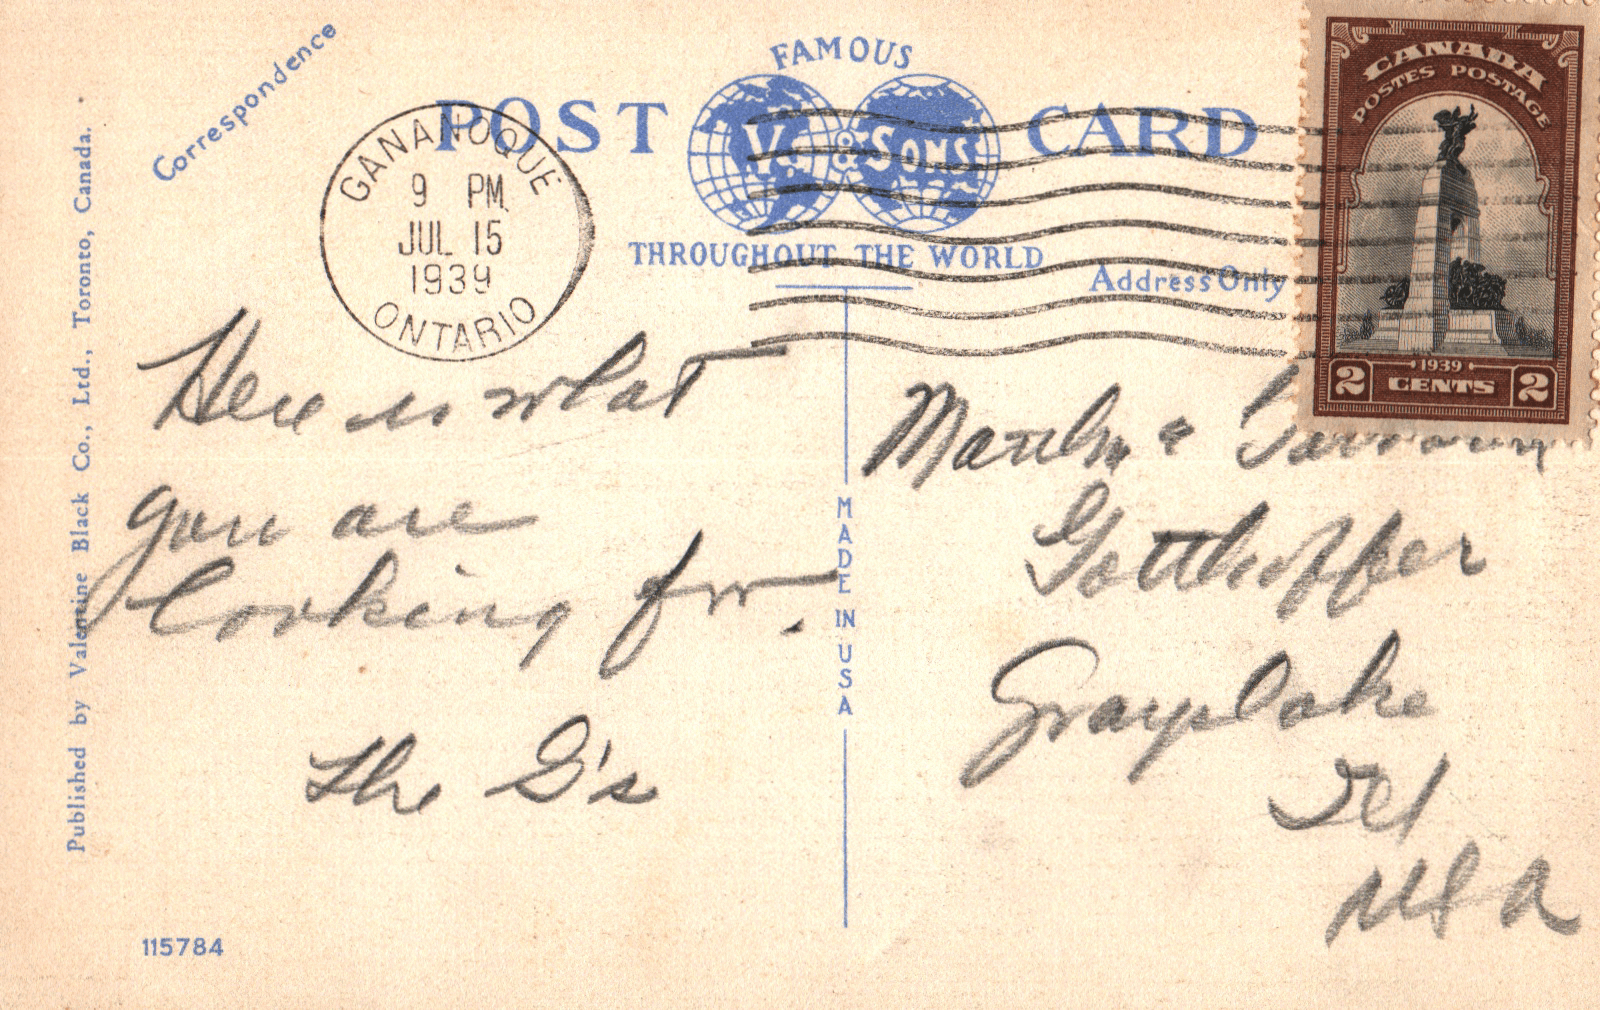 Correspondence
FAMOUS
POST CARD
V. & SONS
THROUGHOUT THE WORLD
Address Only
GANANOQUE
9 PM
JUL 15
1939
ONTARIO
CANADA
POSTES POSTAGE
1939
2 CENTS 2
Here is what
you are
looking for.
The G's
Marilyn &
Gottlieffer
Grayslake
Ill
USA
MADE IN USA
Published by Valentine Black Co., Ltd., Toronto, Canada.
115784